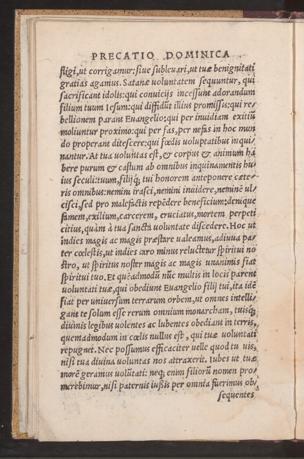 PRECATIO DOMINICA
fligi, ut corrigamur: siue subleuari, ut tuæ benignitati
gratias agamus. Satanæ uoluntatem sequuntur, qui
sacrificant idolis: qui conuicijs incessunt adorandum
filium tuum Iesum: qui diffidũt illius promissis: qui re/
bellionem parant Euangelio: qui per inuidiam exitiũ
moliuntur proximo: qui per fas, per nefas in hoc mun
do properant ditescere: qui fœdis uoluptatibus inqui/
nantur. At tua uoluntas est, & corpus & animum ha
bere purum & castum ab omnibus inquinamentis hu
ius seculi: tuum, filijq́; tui honorem anteponere cæte/
ris omnibus: nemini irasci, nemini inuidere, neminẽ ul
cisci, sed pro malefactis repẽdere beneficium: deniq́ue
famem, exilium, carcerem, cruciatus, mortem perpeti
citius, quàm à tua sancta uoluntate discedere. Hoc ut
indies magis ac magis præstare ualeamus, adiuua pa/
ter cœlestis, ut indies caro minus reluctetur spiritui no
stro, ut spiritus noster magis ac magis unanimis fiat
spiritui tuo. Et quẽadmodũ nũc multis in locis parent
uoluntati tuæ, qui obediunt Euangelio filij tui, ita idẽ
fiat per uniuersum terrarum orbem, ut omnes intelli/
gant te solum esse rerum omnium monarcham, tuisq́;
diuinis legibus uolentes ac lubentes obediant in terris,
quemadmodum in cœlis nullus est, qui tuæ uoluntati
repugnet. Nec possumus efficaciter uelle quod tu uis,
nisi tua diuina uoluntas nos attraxerit. Iubes ut tuæ
morẽ geramus uolũtati: neq́; enim filiorũ nomen pro/
merebimur, nisi paternis iussis per omnia fuerimus ob/
sequentes